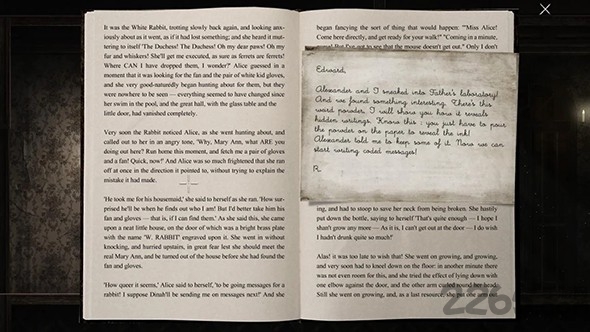 It was the White Rabbit, trotting slowly back again, and looking anx-
iously about as it went, as if it had lost something; and she heard it mut-
tering to itself 'The Duchess! The Duchess! Oh my dear paws! Oh my
fur and whiskers! She'll get me executed, as sure as ferrets are ferrets!
Where CAN I have dropped them, I wonder?' Alice guessed in a
moment that it was looking for the fan and the pair of white kid gloves,
and she very good-naturedly began hunting about for them, but they
were nowhere to be seen — everything seemed to have changed since
her swim in the pool, and the great hall, with the glass table and the
little door, had vanished completely.
Very soon the Rabbit noticed Alice, as she went hunting about, and
called out to her in an angry tone, 'Why, Mary Ann, what ARE you
doing out here? Run home this moment, and fetch me a pair of gloves
and a fan! Quick, now!' And Alice was so much frightened that she ran
off at once in the direction it pointed to, without trying to explain the
mistake it had made.
'He took me for his housemaid,' she said to herself as she ran. 'How sur-
prised he'll be when he finds out who I am! But I'd better take him his
fan and gloves — that is, if I can find them.' As she said this, she came
upon a neat little house, on the door of which was a bright brass plate
with the name 'W. RABBIT' engraved upon it. She went in without
knocking, and hurried upstairs, in great fear lest she should meet the
real Mary Ann, and be turned out of the house before she had found the
fan and gloves.
'How queer it seems,' Alice said to herself, 'to be going messages for a
rabbit! I suppose Dinah'll be sending me on messages next!' And she
began fancying the sort of thing that would happen: '"Miss Alice!
Come here directly, and get ready for your walk!" "Coming in a minute,
nurse! But I've got to see that the mouse doesn't get out." Only I don't
Edward,
Alexander and I sneaked into Father's laboratory!
And we found something interesting. There's this
weird powder, I will show you how it reveals
hidden writings. Know this : you just have to pour
the powder on the paper to reveal the ink!
Alexander told me to keep some of it. Now we can
start writing coded messages!
R.
ing, and had to stoop to save her neck from being broken. She hastily
put down the bottle, saying to herself 'That's quite enough — I hope I
shan't grow any more — As it is, I can't get out at the door — I do wish
I hadn't drunk quite so much!'
Alas! it was too late to wish that! She went on growing, and growing,
and very soon had to kneel down on the floor: in another minute there
was not even room for this, and she tried the effect of lying down with
one elbow against the door, and the other arm curled round her head.
Still she went on growing, and, as a last resource, she put one arm out